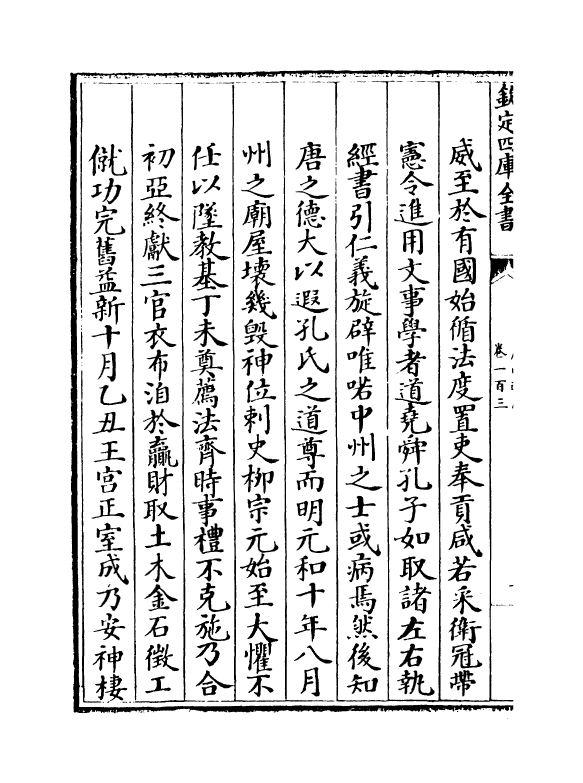 欽定四庫全書
卷一百三
威至於有國始循法度置吏奉貢咸若采衛冠帶
憲令進用文事學者道堯舜孔子如取諸左右執
經書引仁義旋辟唯喏中州之士或病焉然後知
唐之德大以遐孔氏之道尊而明元和十年八月
州之廟屋壞幾毁神位刺史柳宗元始至大懼不
任以墜教基丁未奠薦法齊時事禮不克施乃合
初亞終獻三官衣布洎於羸財取土木金石徵工
僦功完舊益新十月乙丑王宫正室成乃安神棲